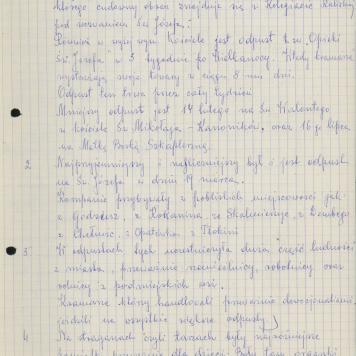 którego cudowny obraz znajduje się w Kolegiacie Kaliskiej
pod wezwaniem św. Józefa.
Również w tym Kościele jest odpust t.zw. "Opieki
Św. Józefa" w 3 tygodnie po Wielkanocy. Kiedy kramarze
wystawiają swoje towary w ciągu 8-miu dni.
Odpust ten trwa przez cały tydzień
Mniejszy odpust jest 14 lutego na Św. Walentego
w kościele Św. Mikołaja - Kanoników, oraz 16-go lipca
na Matkę Boską Szkaplerzną.
2. Najprzyjemniejszy i najliczniejszy był i jest odpust
na Św. Józefa w dniu 19 marca.
Kompanie przybywały z pobliskich miejscowości jak:
z Godziesz, z Kokanina, ze Skalmierzyc, z
z Chełmc, z Opatówka z Tłokini
3. W odpustach tych uczestniczyła duża część ludności
z miasta, przeważnie rzemieślnicy, robotnicy oraz
rolnicy z podmiejskich wsi.
Kramarze którzy handlowali przeważnie dewocjonaliami
jeździli na wszystkie większe odpusty
4. Na straganach czyli kramach były najróżniejsze
dla dzieci. Były tam